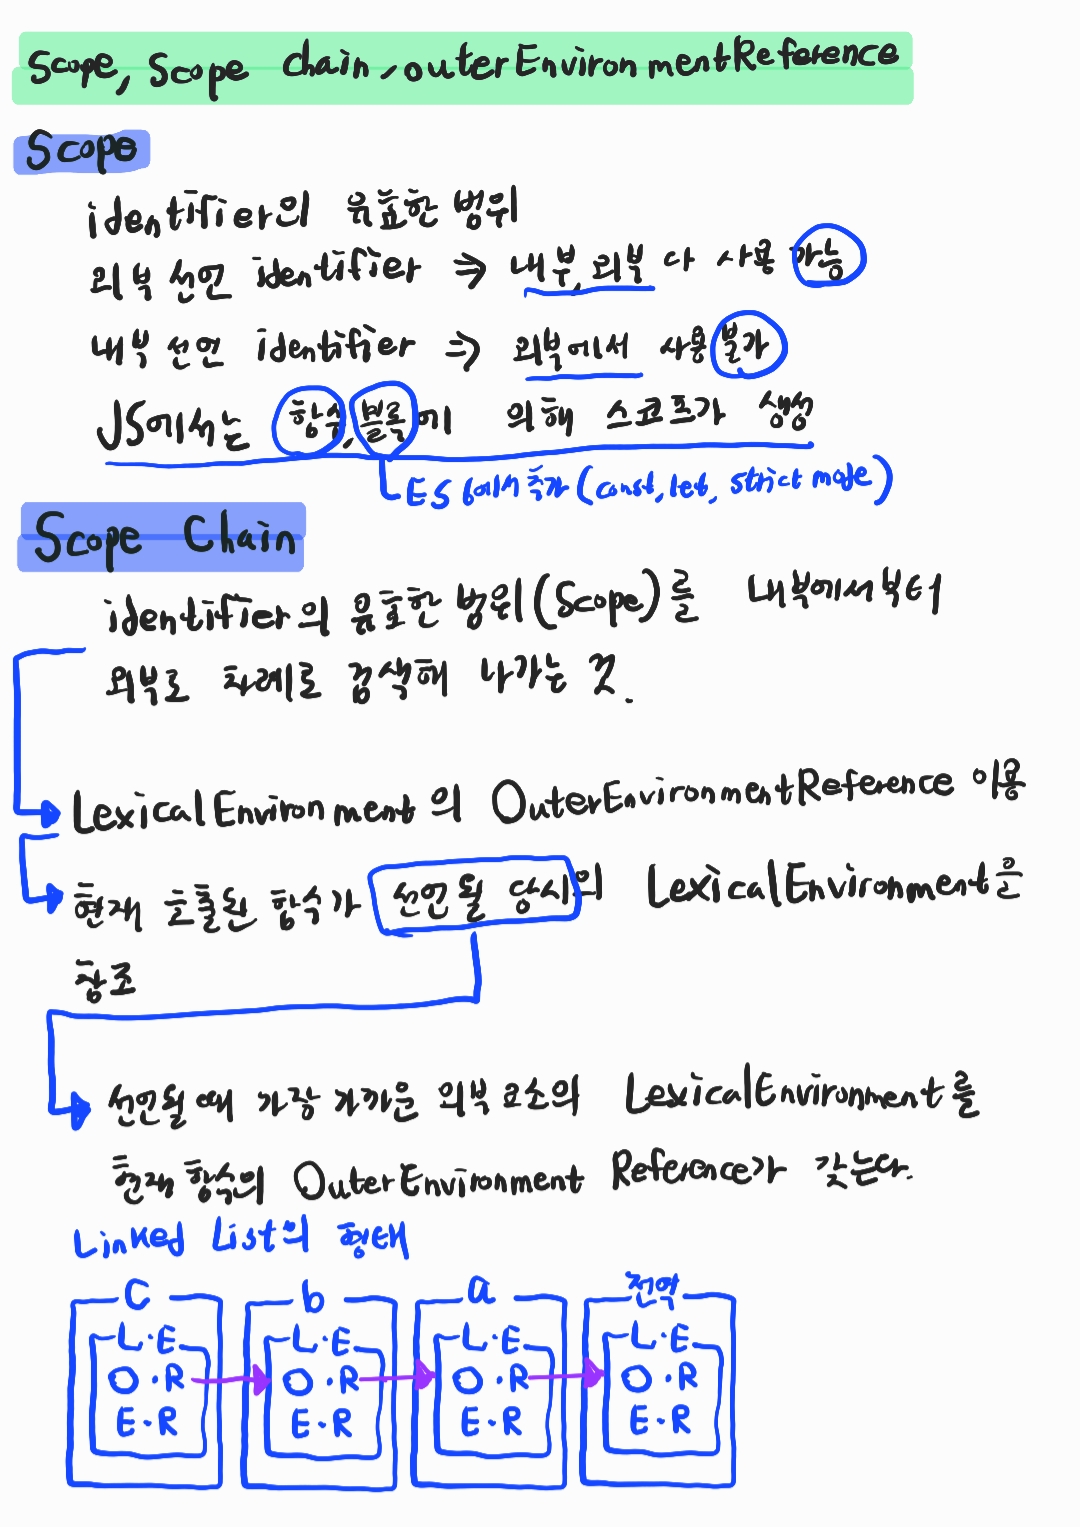 Scope, Scope Chain, outerEnvironmentReference
Scope
identifier의 유효한 범위
외부 선언 identifier ⇒ 내부, 외부 다 사용 가능
내부 선언 identifier ⇒ 외부에서 사용 불가
JS에서는 함수, 블록에 의해 스코프가 생성
ES6에서 추가 (const, let, strict mode)
Scope Chain
identifier의 유효한 범위(Scope)를 내부에서부터
외부로 차례로 검색해 나가는 것.
LexicalEnvironment의 OuterEnvironmentReference 이용
현재 호출된 함수가 선언될 당시의 LexicalEnvironment을
참조
선언될 때 가장 가까운 외부 요소의 LexicalEnvironment를
현재 함수의 OuterEnvironment Reference가 갖는다.
Linked List의 형태
C b a 전역
L·E L·E L·E L·E
O·R O·R O·R O·R
E·R E·R E·R E·R